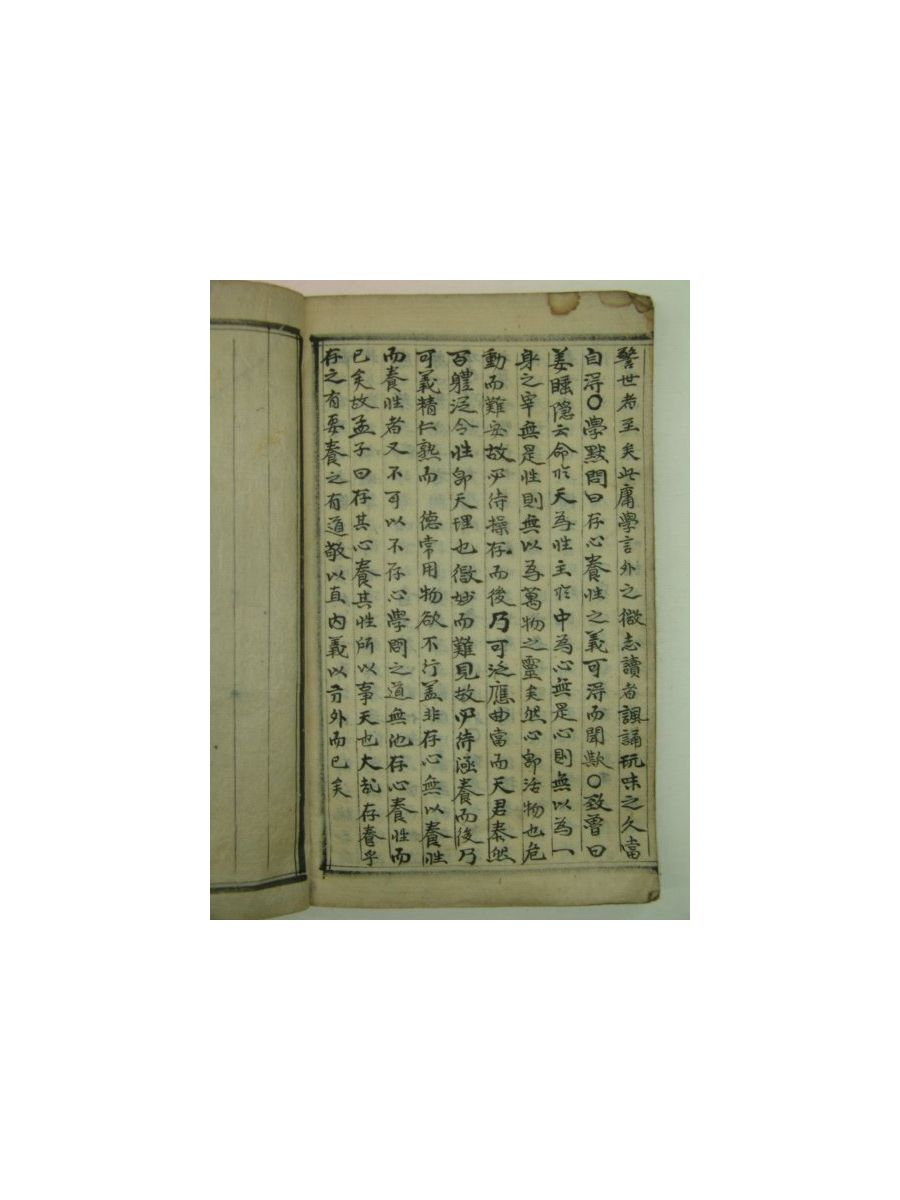 警世者至矣此庸學言外之微志讀者諷誦玩味之久當
自淂○學默問曰存心養性之義可淂而聞歟○致曾曰
姜睡隱云命於天為性主於中為心無是心則無以為一
身之宰無是性則無以為萬物之靈矣然心卽活物也危
動而難安故必待操存而後乃可泛應曲當而天君泰然
百軆從令性卽天理也微妙而難見故必待涵養而後乃
可義精仁熟而 德常用物欲不行盖非存心無以養性
而養性者又不可以不存心學問之道無他存心養性而
已矣故孟子曰存其心養其性所以事天也大哉存養乎
存之有要養之有道敬以直內義以方外而已矣